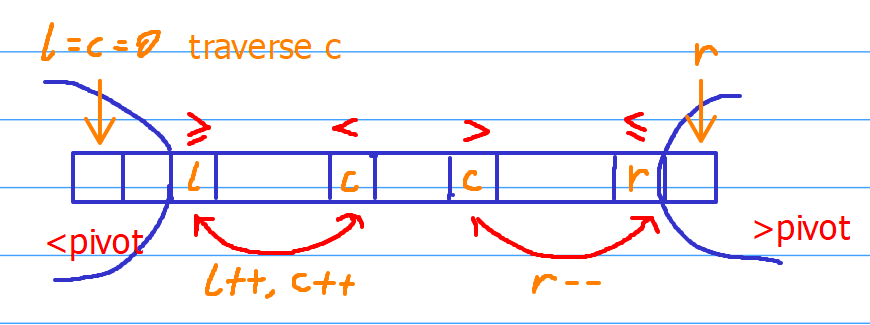 l=c=0 traverse c
r
≥ < > ≤
l c c r
<pivot >pivot
l++, c++ r--